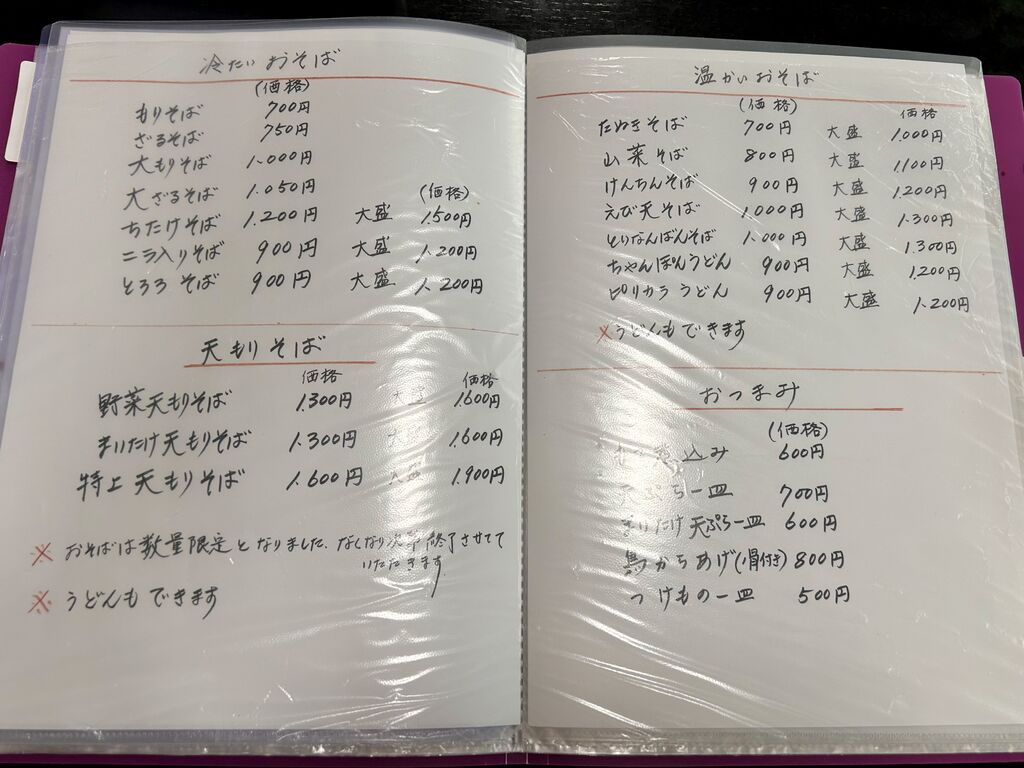 冷たいおそば
(価格)
もりそば 700円
ざるそば 750円
大もりそば 1.000円
大ざるそば 1.050円
(価格)
ちたけそば 1.200円 大盛 1.500円
ニラ入りそば 900円 大盛 1.200円
とろろそば 900円 大盛 1.200円
天もりそば
価格 価格
野菜天もりそば 1.300円 大盛 1.600円
まいたけ天もりそば 1.300円 大盛 1.600円
特上天もりそば 1.600円 大盛 1.900円
※ おそばは数量限定となりました、なしなり次第終了させて
いただきます
※ うどんもできます
温かいおそば
(価格) 価格
たぬきそば 700円 大盛 1.000円
山菜そば 800円 大盛 1.100円
けんちんそば 900円 大盛 1.200円
えび天そば 1.000円 大盛 1.300円
とりなんばんそば 1.000円 大盛 1.300円
ちゃんぽんうどん 900円 大盛 1.200円
ピリカラうどん 900円 大盛 1.200円
※うどんもできます
おつまみ
(価格)
煮込み 600円
天ぷら一皿 700円
まいたけ天ぷら一皿 600円
鳥からあげ(骨付き) 800円
つけもの一皿 500円